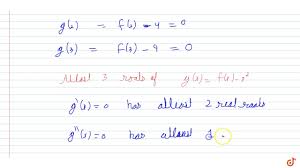 g(2) = f(2) - 4 = 0
g(3) = f(3) - 9 = 0
Atleast 3 roots of g(x) = f(x) - x²
g'(x) = 0 has atleast 2 real roots
g''(x) = 0 has atleast 1